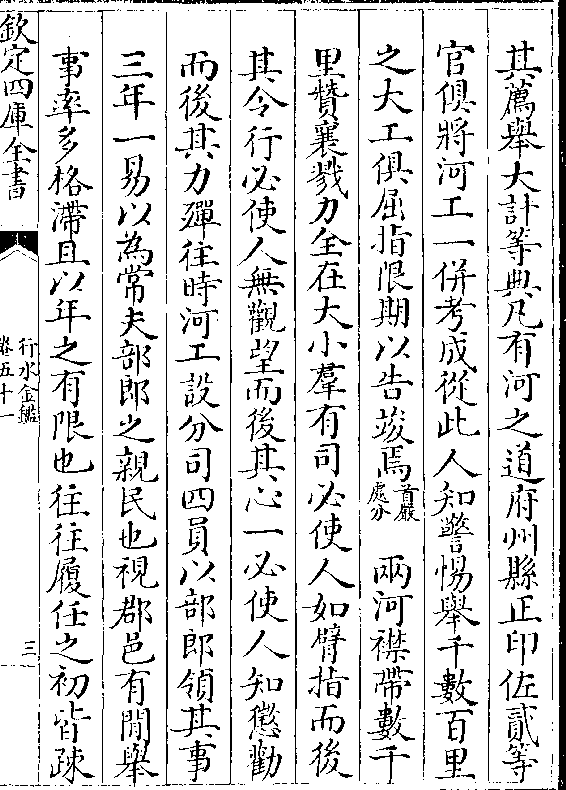 其薦舉大計等典凡有河之道府州縣正印佐貳等
官俱將河工一併考成從此人知警惕舉千數百里
之大工俱屈指限期以告竣焉首嚴處分　兩河襟帶數千
里贊襄戮力全在大小羣有司必使人如臂指而後
其令行必使人無觀望而後其心一必使人知懲勸
而後其力殫往時河工設分司四員以部郎領其事
三年一易以為常夫部郎之親民也視郡邑有間舉
事率多格滯且以年之有限也往往履任之初皆疎
欽定四庫全書
行水金鑑
卷五十一
三